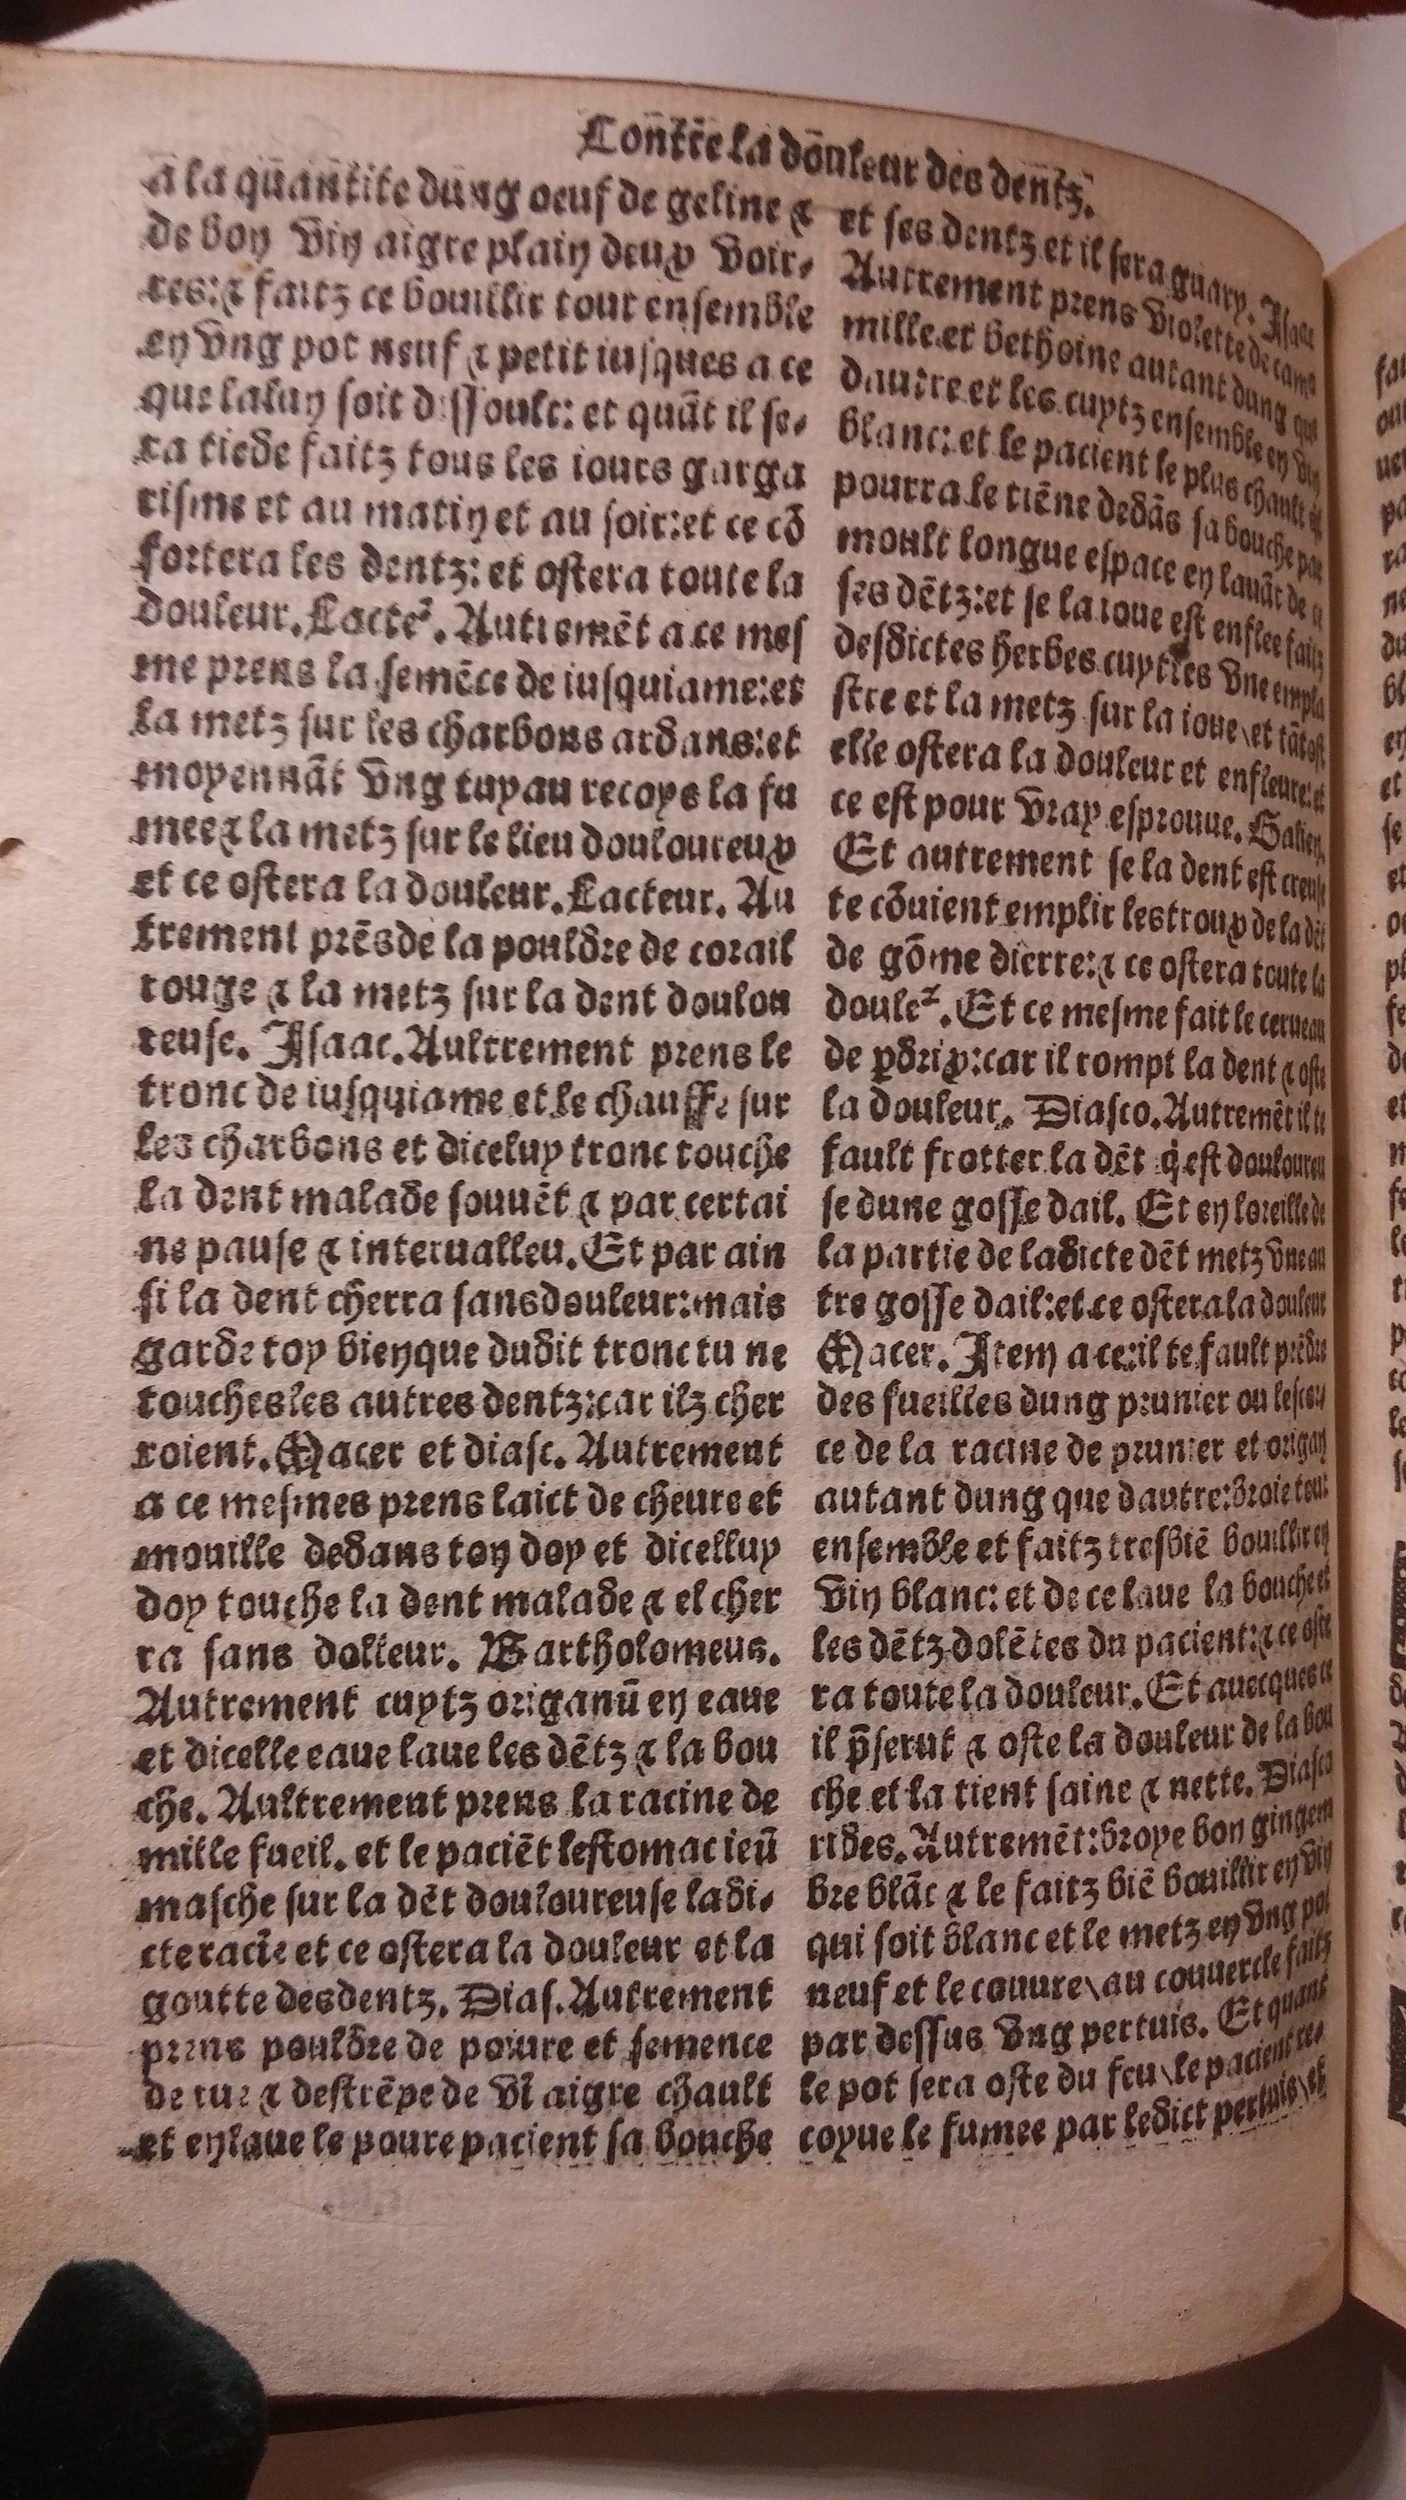 Contre la douleur des dentz.
a la quantite dung oeuf de geline ⁊
de bon vin aigre plain deux voir⸗
res:⁊ faitz ce bouillir tout ensemble
en vng pot neuf ⁊ petit iusques a ce
que lalun soit dissoult: et quãt il se⸗
ra tiede faitz tous les iours garga
risme et au matin et au soir:et ce cõ
fortera les dentz: et ostera toute la
douleur. Lacteᷣ. Autremẽt a ce mes
me prens la semẽce de iusquiame:et
la metz sur les charbons ardans:et
moyennãt vng tuyau recoys la fu
mee⁊ la metz sur le lieu douloureux
et ce ostera la douleur. Lacteur. Au
trement prẽs de la pouldre de corail
rouge ⁊ la metz sur la dent doulou
reuse. Isaac. Aultrement prens le
tronc de iusquiame et le chauffe sur
les charbons et diceluy tronc touche
la dent malade souuẽt ⁊ par certai
ne pause ⁊ interualleu. Et par ain
si la dent cherra sans douleur:mais
garde toy bien que dudit tronc tu ne
touches les autres dentz:car ilz cher
roient. Macer et diasc. Autrement
a ce mesmes prens laict de cheure et
mouille dedans ton doy et dicelluy
doy touche la dent malade ⁊ el cher
ra sans dolleur. Bartholomeus.
Autrement cuytz origanũ en eaue
et dicelle eaue laue les dẽtz ⁊ la bou
che. Aultrement prens la racine de
mille fueil. et le paciẽt lestomac ieũ
masche sur la dẽt douloureuse ladi⸗
cte racĩe et ce ostera la douleur et la
goutte des dentz. Dias. Autrement
prens pouldre de poiure et semence
de rue ⁊ destrẽpe de vĩ aigre chault
et en laue le poure pacient sa bouche
et ses dentz et il sera guary. Isaac
Autrement prens violette de camo
mille.et bethoine autant dung que
dautre et les cuytz ensemble en vin
blanc: et le pacient le plus chault q̃l
pourra le tiẽne dedãs sa bouche par
moult longue espace en lauãt de ce
ses dẽtz:et se la ioue est enflee faitz
desdictes herbes cuyttes vne empla
stre et la metz sur la ioue\et tãtost
elle ostera la douleur et enfleure:et
ce est pour vray esprouue. Galien.
Et autrement se la dent est creuse
te cõuient emplir les troux de la dẽt
de gõme dierre:⁊ ce ostera toute la
douleᷣ. Et ce mesme fait le cerueau
de ꝑdrix:car il rompt la dent ⁊ oste
la douleur. Diasco. Autremẽt il te
fault frotter la dẽt q̇ est douloureu
se dune gosse dail. Et en loreille de
la partie de ladicte dẽt metz vne au
tre gosse dail:et ce ostera la douleur
Macer. Item a ce:il te fault prẽdre
des fueilles dung prunier ou lescor
ce de la racine de prunier et origan
autant dung que dautre:broie tout
ensemble et faitz tresbiẽ bouillir en
vin blanc: et de ce laue la bouche et
les dẽtz dolẽtes du pacient:⁊ ce oste
ra toute la douleur. Et auecques ce
il p̃serut ⁊ oste la douleur de la bou
che et la tient saine ⁊ nette. Diasco
rides. Autremẽt:broye bon gingem
bre blãc ⁊ le faitz biẽ bouillir en vin
qui soit blanc et le metz en vng pot
neuf et le couure\au couuercle faitz
par dessus vng pertuis. Et quant
le pot sera oste du feu\le pacient re⸗
coyue le fumee par ledict pertuis\et